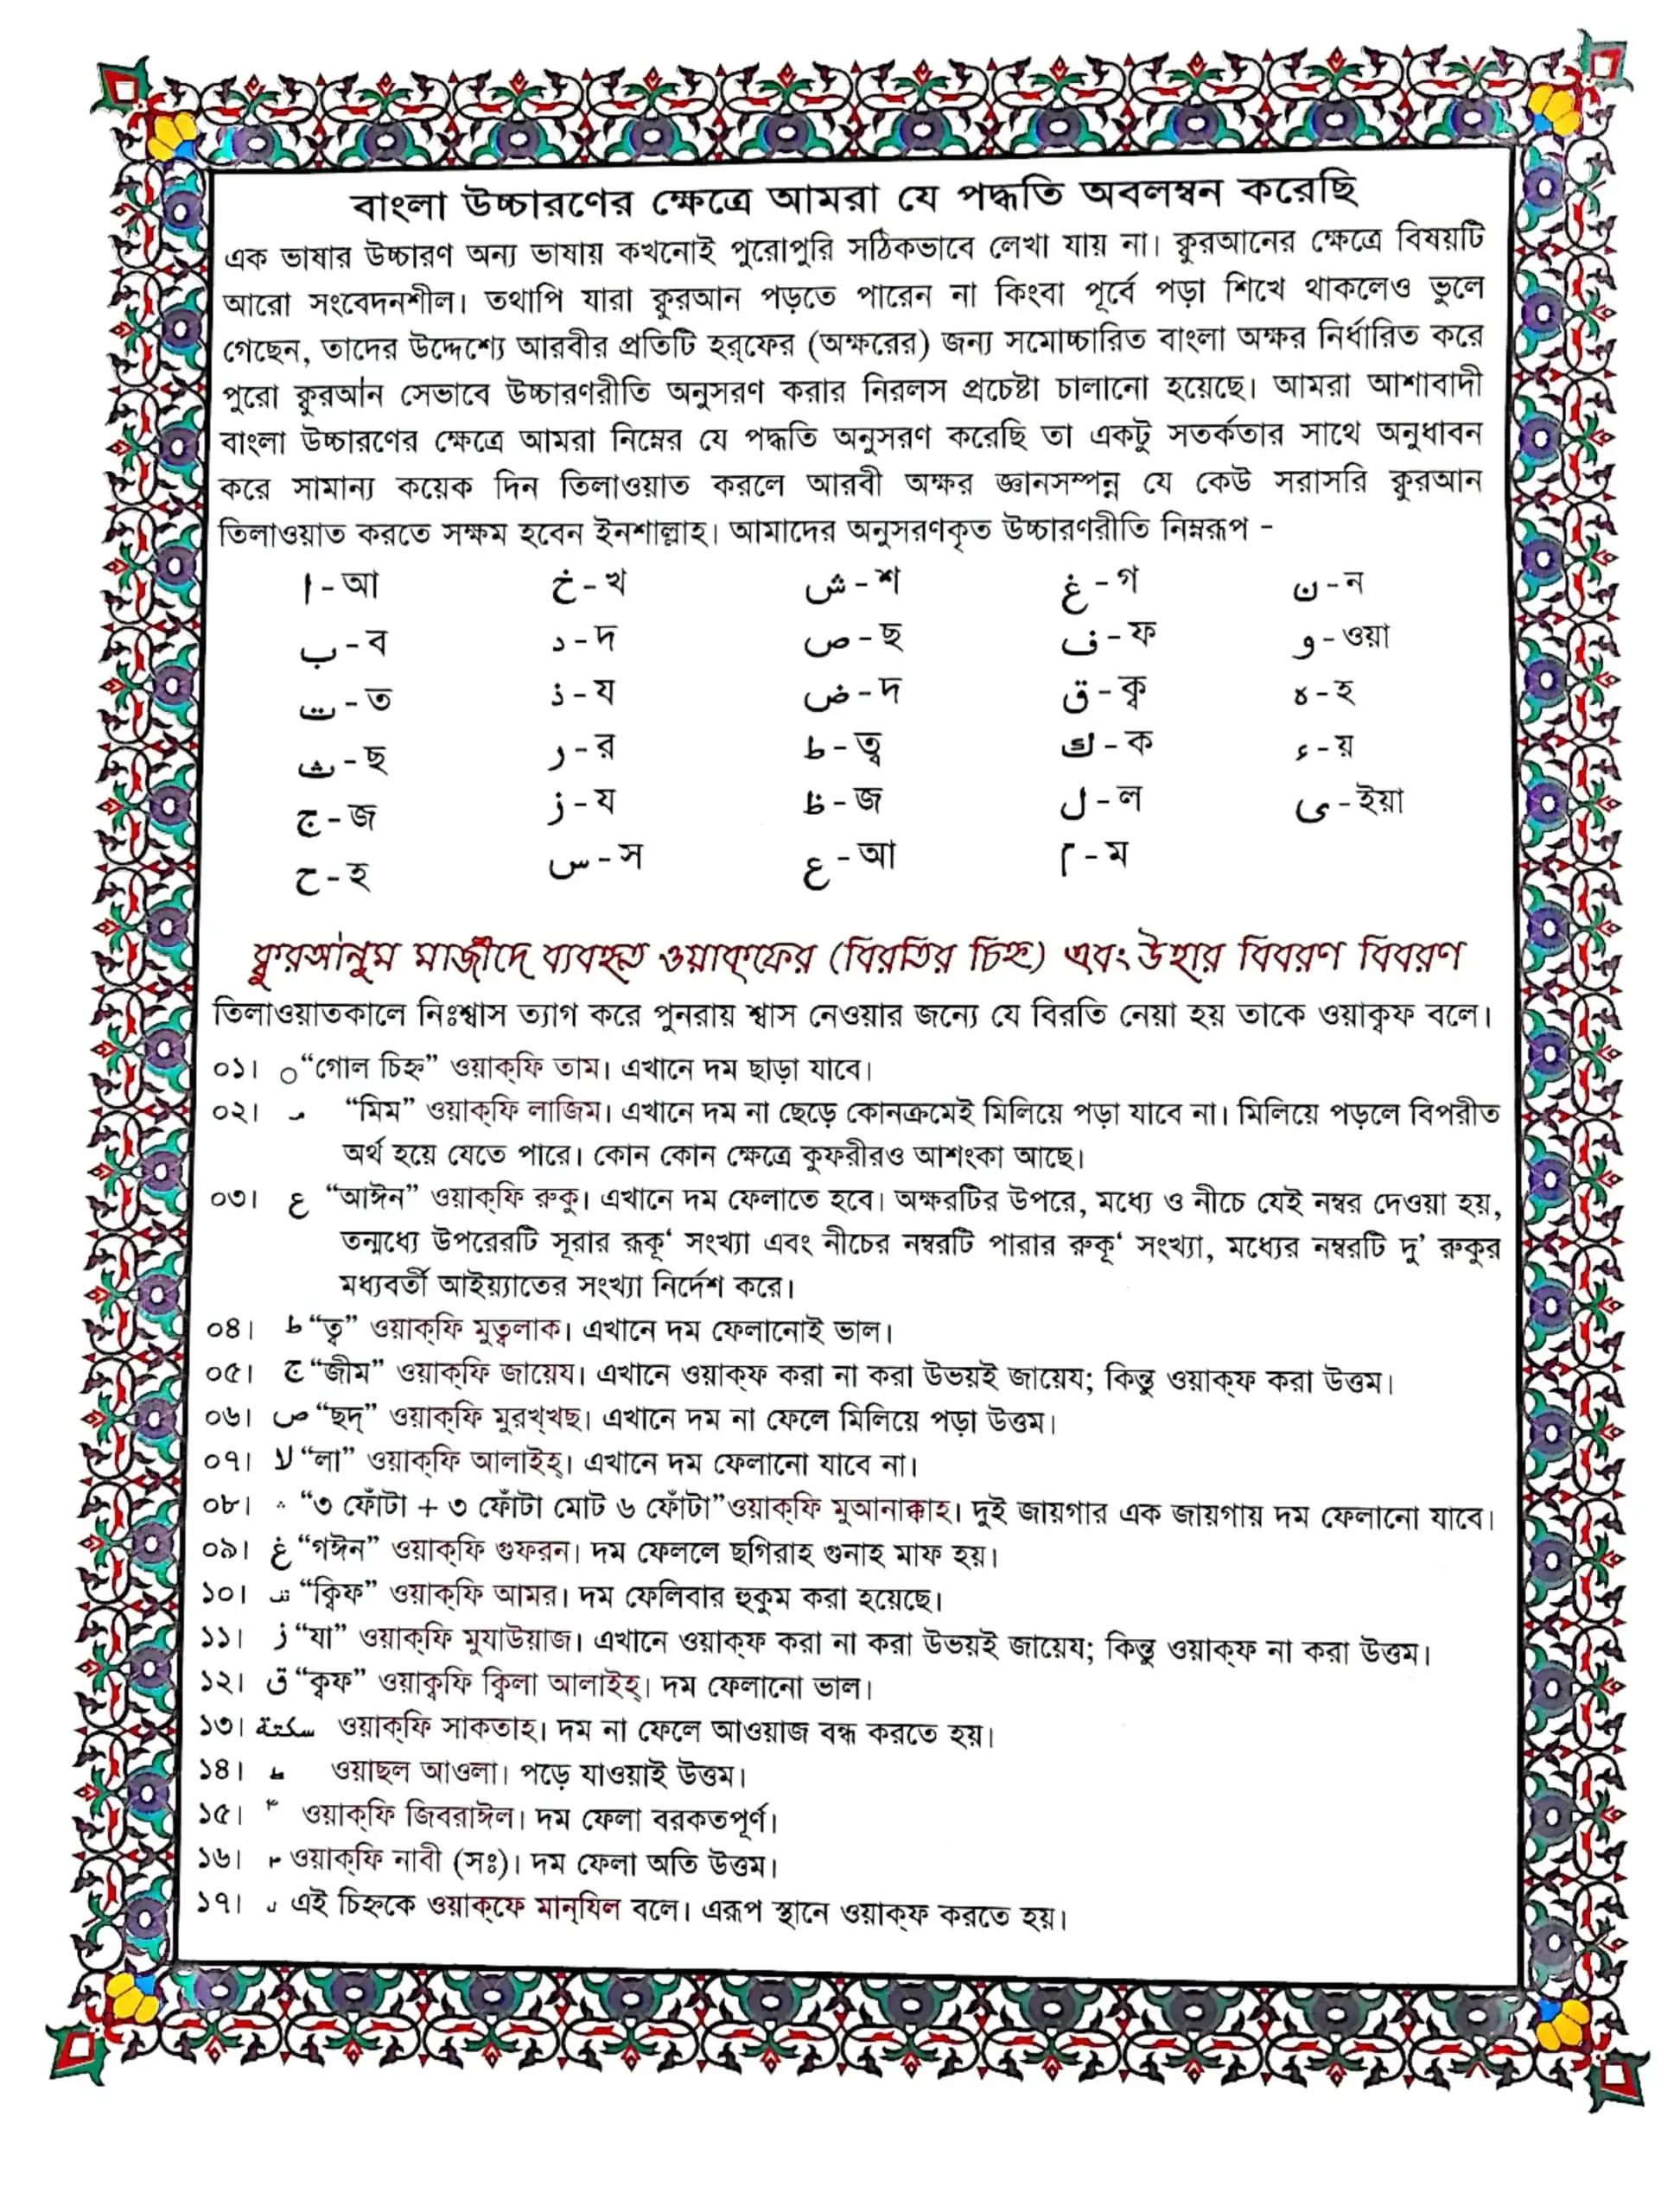 বাংলা উচ্চারণের ক্ষেত্রে আমরা যে পদ্ধতি অবলম্বন করেছি
এক ভাষার উচ্চারণ অন্য ভাষায় কখনোই পুরোপুরি সঠিকভাবে লেখা যায় না। ক্বুরআনের ক্ষেত্রে বিষয়টি
আরো সংবেদনশীল। তথাপি যারা ক্বুরআন পড়তে পারেন না কিংবা পূর্বে পড়া শিখে থাকলেও ভুলে
গেছেন, তাদের উদ্দেশ্যে আরবীর প্রতিটি হর্‌ফের (অক্ষরের) জন্য সমোচ্চারিত বাংলা অক্ষর নির্ধারিত করে
পুরো ক্বুরআন সেভাবে উচ্চারণরীতি অনুসরণ করার নিরলস প্রচেষ্টা চালানো হয়েছে। আমরা আশাবাদী
বাংলা উচ্চারণের ক্ষেত্রে আমরা নিম্নের যে পদ্ধতি অনুসরণ করেছি তা একটু সতর্কতার সাথে অনুধাবন
করে সামান্য কয়েক দিন তিলাওয়াত করলে আরবী অক্ষর জ্ঞানসম্পন্ন যে কেউ সরাসরি ক্বুরআন
তিলাওয়াত করতে সক্ষম হবেন ইনশাল্লাহ। আমাদের অনুসরণকৃত উচ্চারণরীতি নিম্নরূপ -
ا - আ خ - খ ش - শ غ - গ ن - ন
ب - ব د - দ ص - ছ ف - ফ و - ওয়া
ت - ত ذ - য ض - দ ق - ক্ব ه - হ
ث - ছ ر - র ط - ত্ব ك - ক ء - য়
ج - জ ز - য ظ - জ ل - ল ى - ইয়া
ح - হ س - স ع - আ م - ম
ক্বুরআনুম মাজীদে ব্যবহৃত ওয়াক্‌ফের (বিরতির চিহ্ন) এবং উহার বিবরণ বিবরণ
তিলাওয়াতকালে নিঃশ্বাস ত্যাগ করে পুনরায় শ্বাস নেওয়ার জন্যে যে বিরতি নেয়া হয় তাকে ওয়াক্বফ বলে।
০১। ○ “গোল চিহ্ন” ওয়াক্‌ফি তাম। এখানে দম ছাড়া যাবে।
০২। مـ “মিম” ওয়াক্‌ফি লাজিম। এখানে দম না ছেড়ে কোনক্রমেই মিলিয়ে পড়া যাবে না। মিলিয়ে পড়লে বিপরীত
অর্থ হয়ে যেতে পারে। কোন কোন ক্ষেত্রে কুফরীরও আশংকা আছে।
০৩। ع “আঈন” ওয়াক্‌ফি রুকু। এখানে দম ফেলাতে হবে। অক্ষরটির উপরে, মধ্যে ও নীচে যেই নম্বর দেওয়া হয়,
তন্মধ্যে উপরেরটি সূরার রূকূ‘ সংখ্যা এবং নীচের নম্বরটি পারার রুকূ‘ সংখ্যা, মধ্যের নম্বরটি দু’ রুকুর
মধ্যবর্তী আইয়্যাতের সংখ্যা নির্দেশ করে।
০৪। ط “ত্ব” ওয়াক্‌ফি মুত্বলাক। এখানে দম ফেলানোই ভাল।
০৫। ج “জীম” ওয়াক্‌ফি জায়েয। এখানে ওয়াক্‌ফ করা না করা উভয়ই জায়েয; কিন্তু ওয়াক্‌ফ করা উত্তম।
০৬। ص “ছদ্‌” ওয়াক্‌ফি মুরখ্‌খছ। এখানে দম না ফেলে মিলিয়ে পড়া উত্তম।
০৭। لا “লা” ওয়াক্‌ফি আলাইহ্‌। এখানে দম ফেলানো যাবে না।
০৮। ∴ “৩ ফোঁটা + ৩ ফোঁটা মোট ৬ ফোঁটা” ওয়াক্‌ফি মুআনাক্কাহ। দুই জায়গার এক জায়গায় দম ফেলানো যাবে।
০৯। غ “গঈন” ওয়াক্‌ফি গুফরন। দম ফেললে ছগিরাহ গুনাহ মাফ হয়।
১০। “ক্বিফ” ওয়াক্‌ফি আমর। দম ফেলিবার হুকুম করা হয়েছে।
১১। ز “যা” ওয়াক্‌ফি মুযাউয়াজ। এখানে ওয়াক্‌ফ করা না করা উভয়ই জায়েয; কিন্তু ওয়াক্‌ফ না করা উত্তম।
১২। ق “ক্বফ” ওয়াক্বফি ক্বিলা আলাইহ্‌। দম ফেলানো ভাল।
১৩। سكتة ওয়াক্‌ফি সাকতাহ। দম না ফেলে আওয়াজ বন্ধ করতে হয়।
১৪। ওয়াছল আওলা। পড়ে যাওয়াই উত্তম।
১৫। ওয়াক্‌ফি জিবরাঈল। দম ফেলা বরকতপূর্ণ।
১৬। ওয়াক্‌ফি নাবী (সঃ)। দম ফেলা অতি উত্তম।
১৭। এই চিহ্নকে ওয়াক্‌ফে মান্‌যিল বলে। এরূপ স্থানে ওয়াক্‌ফ করতে হয়।